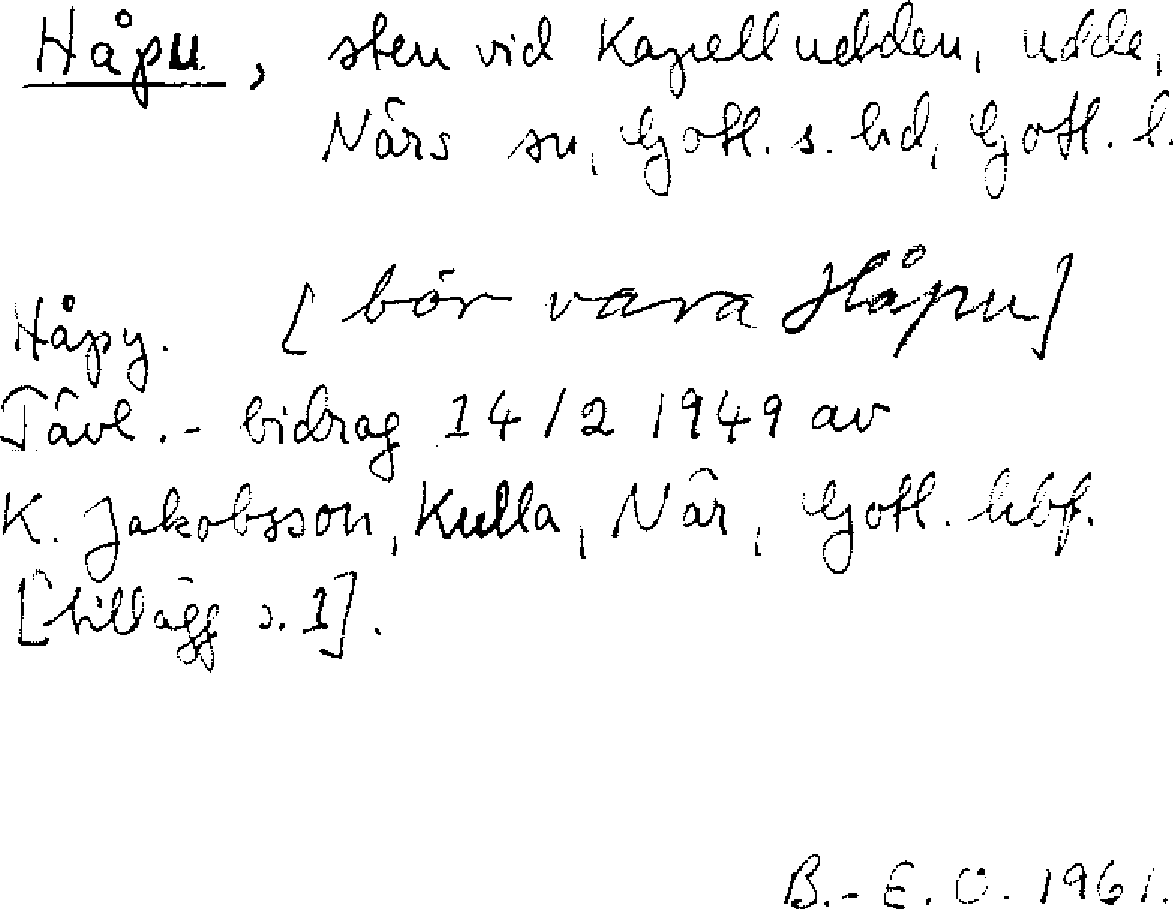 Håpu, sten vid Kapelludden, udde,
Närs sn, Gotl. s. hd, Gotl. l.
Håpy. [bör vara Håpu]
Tävl.- bidrag 14/2 1949 av
K. Jakobsson, Kulla, När, Gotl. hbf.
[tillägg s. 1].
B.-E. O. 1961.